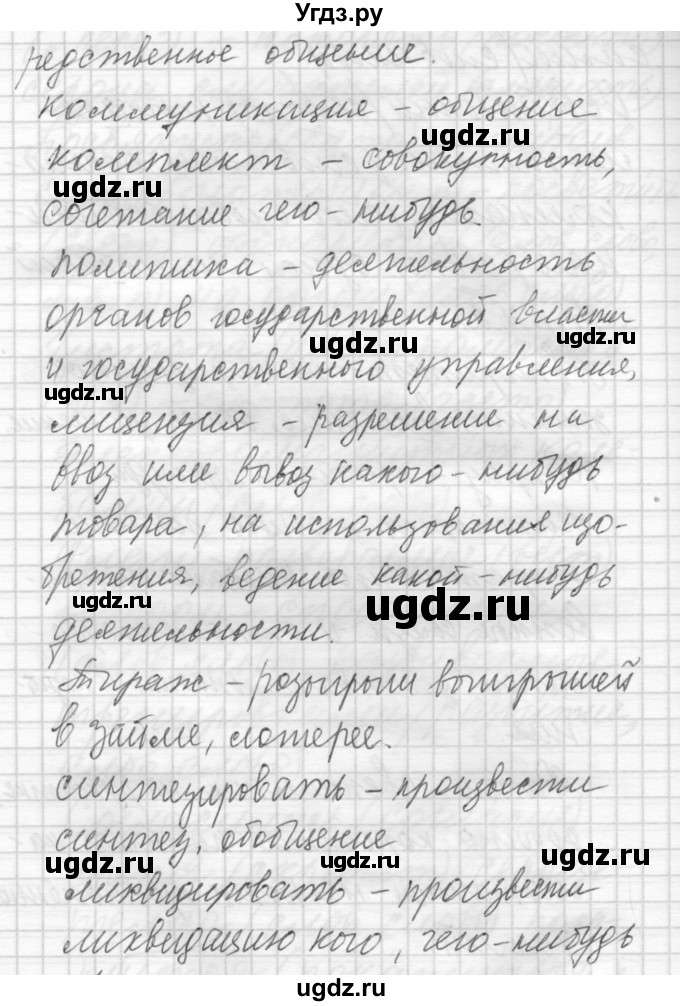 Угдз.ру
редственное общение.
Коммуникация – общение
ugdz.ru
комплект – совокупность,
ugdz.ru
сочетание чего-нибудь.
политика – деятельность
органов государственной власти
ugdz.ru
ugdz.ru
и государственного управления,
ugdz.ru
лицензия – разрешение на
ввоз или вывоз какого-нибудь
товара, на использования изо-
бретения, ведение какой-нибудь
ugdz.ru
ugdz.ru
деятельности.
Тираж – розыгрыш выигрышей
в займе, лотерее.
синтезировать – произвести
синтез, обобщение
ugdz.ru
ugdz.ru
ugdz.ru
ликвидировать – произвести
ликвидацию кого, чего-нибудь
ugdz.ru